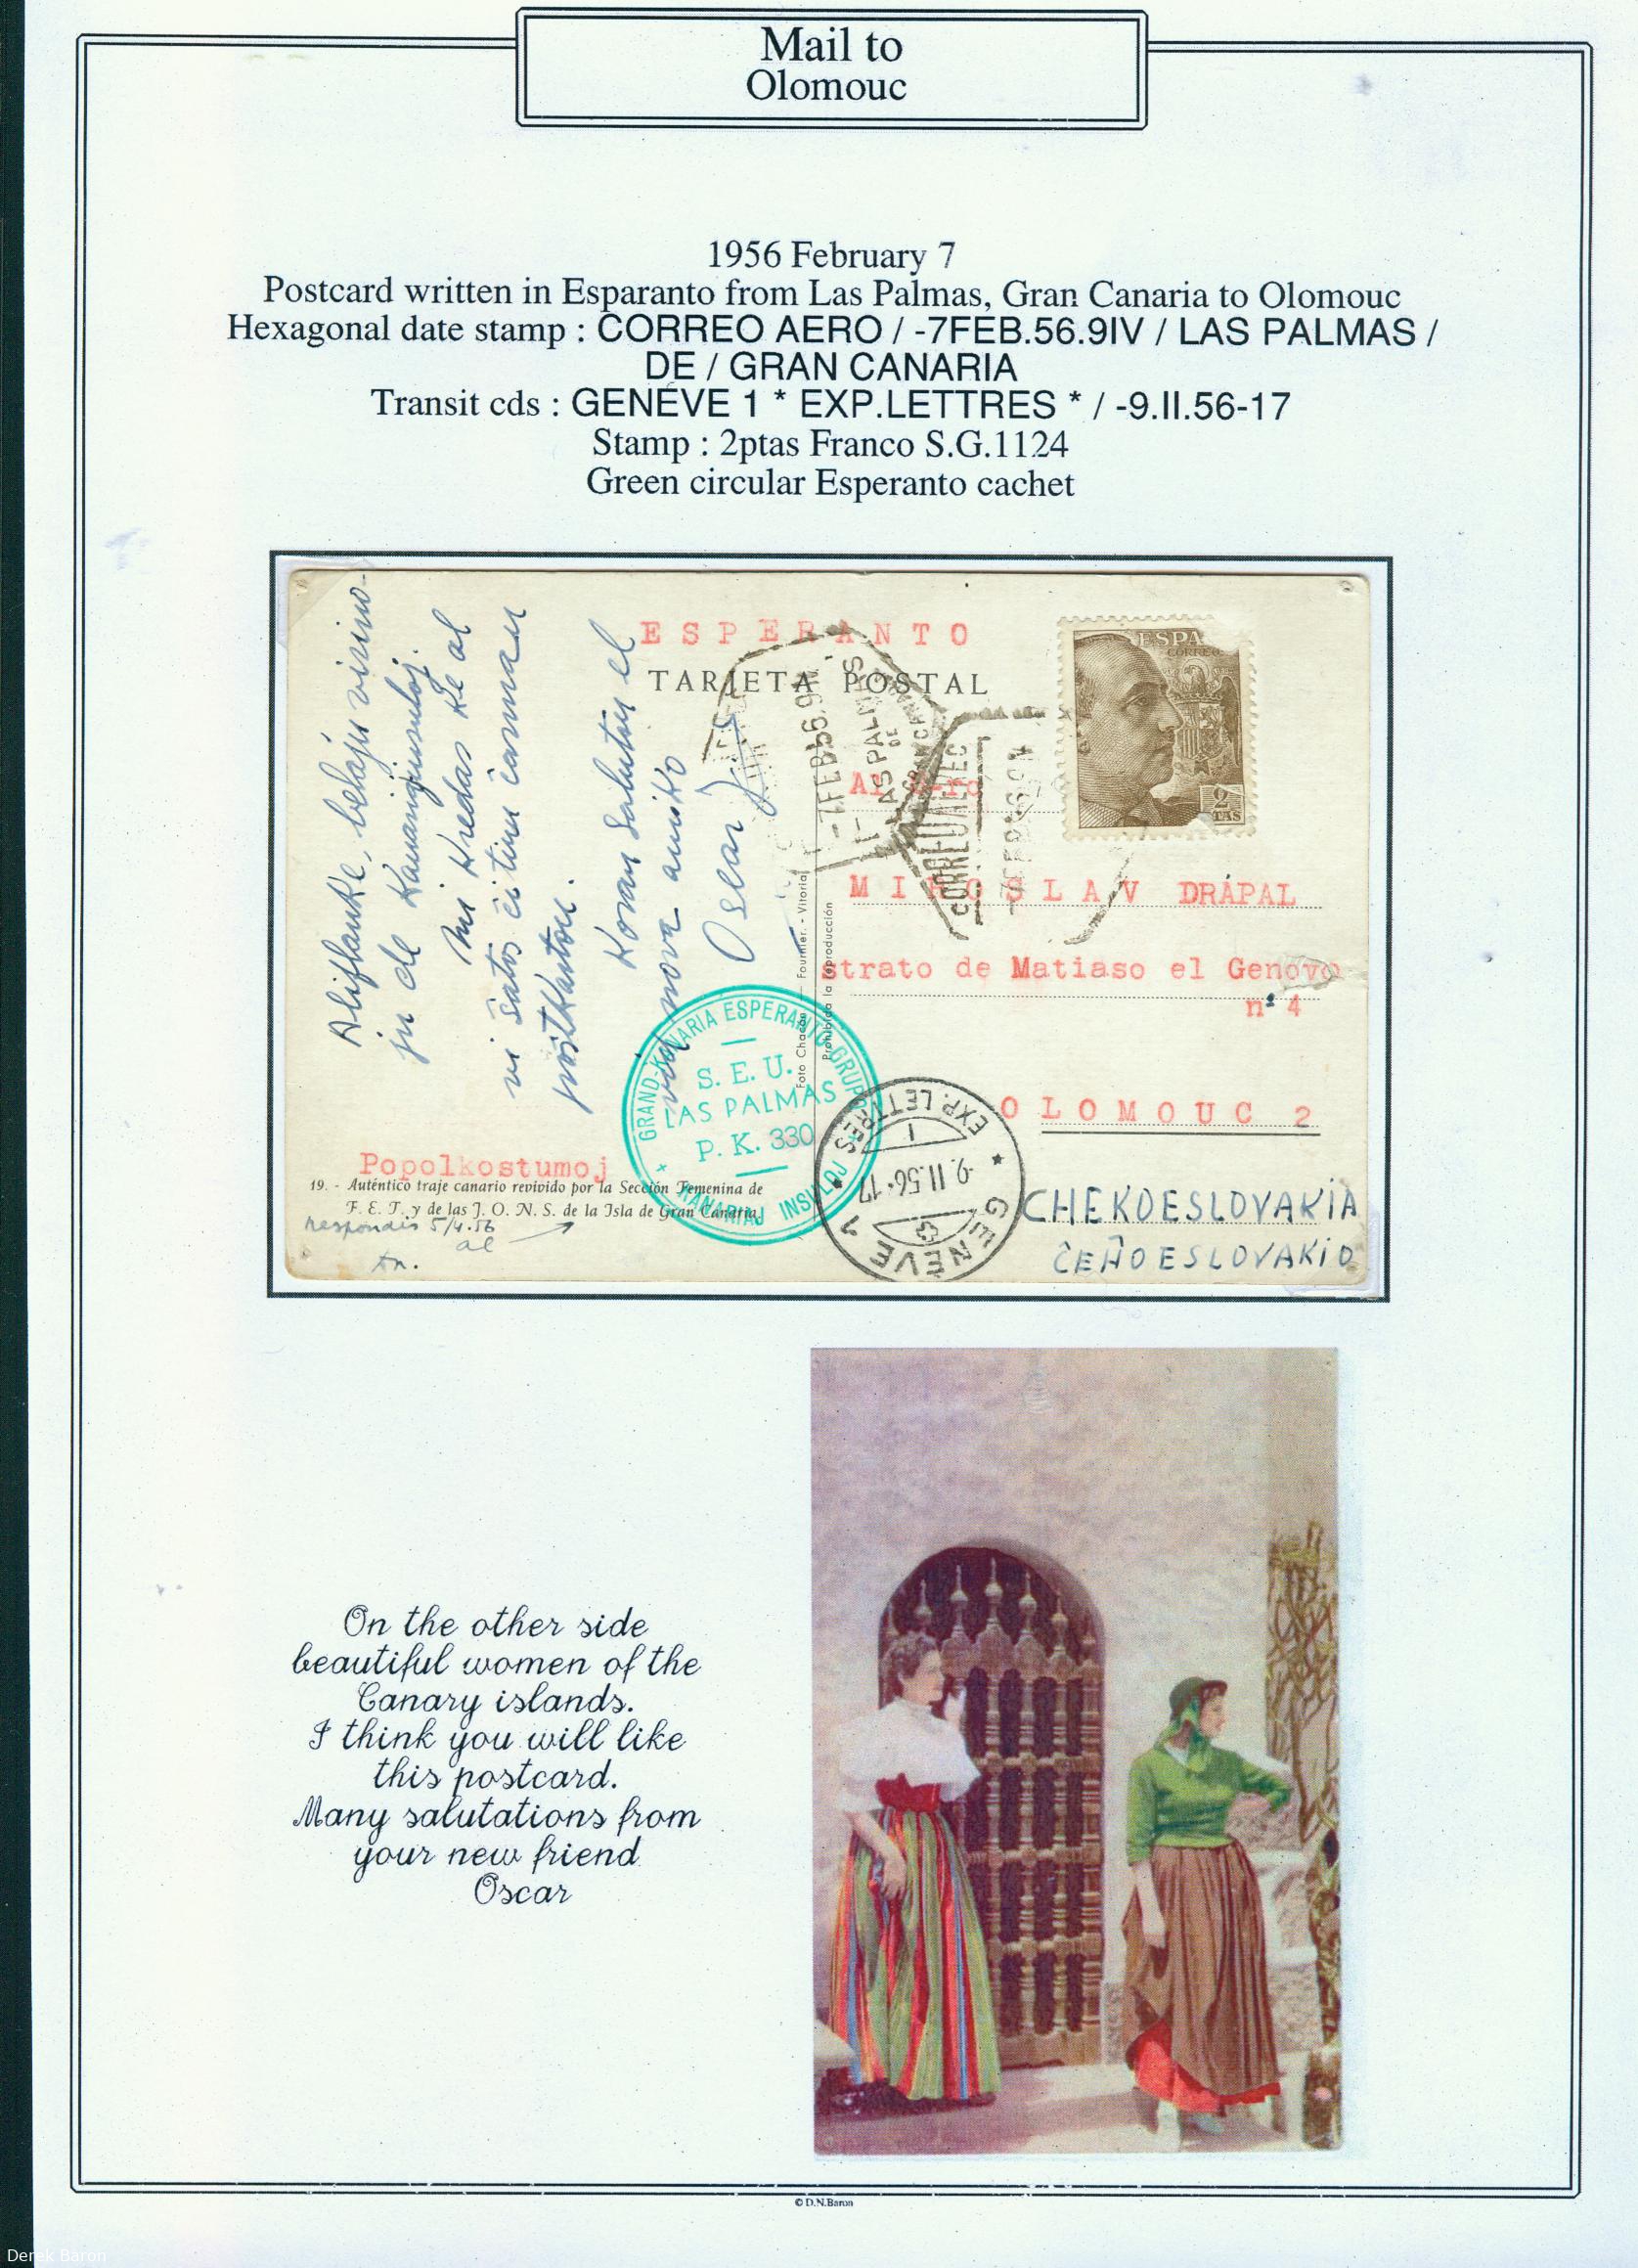 Mail to
Olomouc
1956 February 7
Postcard written in Esparanto from Las Palmas, Gran Canaria to Olomouc
Hexagonal date stamp : CORREO AERO / -7FEB.56.9IV / LAS PALMAS /
DE / GRAN CANARIA
Transit cds : GENÉVE 1 * EXP.LETTRES * / -9.II.56-17
Stamp : 2ptas Franco S.G.1124
Green circular Esperanto cachet
Aliflanke, belaju virino-
jn de Kanariajinsuloj.
Mi kredas ke al
vi ŝatos ĉi tiun
postkarton.
Koran saluton el
via nova amiko
Oscar
ESPERANTO
TARJETA POSTAL
ESPA
CORREO
2
TAS
-7FEB56.9IV
LAS PALMAS
DE
GRAN CANARIA
CORREO AEREO
Al
MIROSLAV DRÁPAL
strato de Matiaso el Genovo
nº 4
OLOMOUC 2
CHEKOESLOVAKiA
ĈEĤOESLOVAKiO
Foto Chacón - Fournier. - Vitoria
Prohibida la reproducción
GRAND-KANARIA ESPERANTO GRUPO
S. E. U.
LAS PALMAS
P. K. 330
KANARIAJ INSULOJ
EXP. LETTRES
1
-9.II.56-17
GENÈVE 1
Popolkostumoj
19. - Auténtico traje canario revivido por la Sección Femenina de
F. E. T. y de las J. O. N. S. de la Isla de Gran Canaria.
respondis 5/4.56
al
On the other side
beautiful women of the
Canary islands.
I think you will like
this postcard.
Many salutations from
your new friend
Oscar
© D.N.Baron
Derek Baron